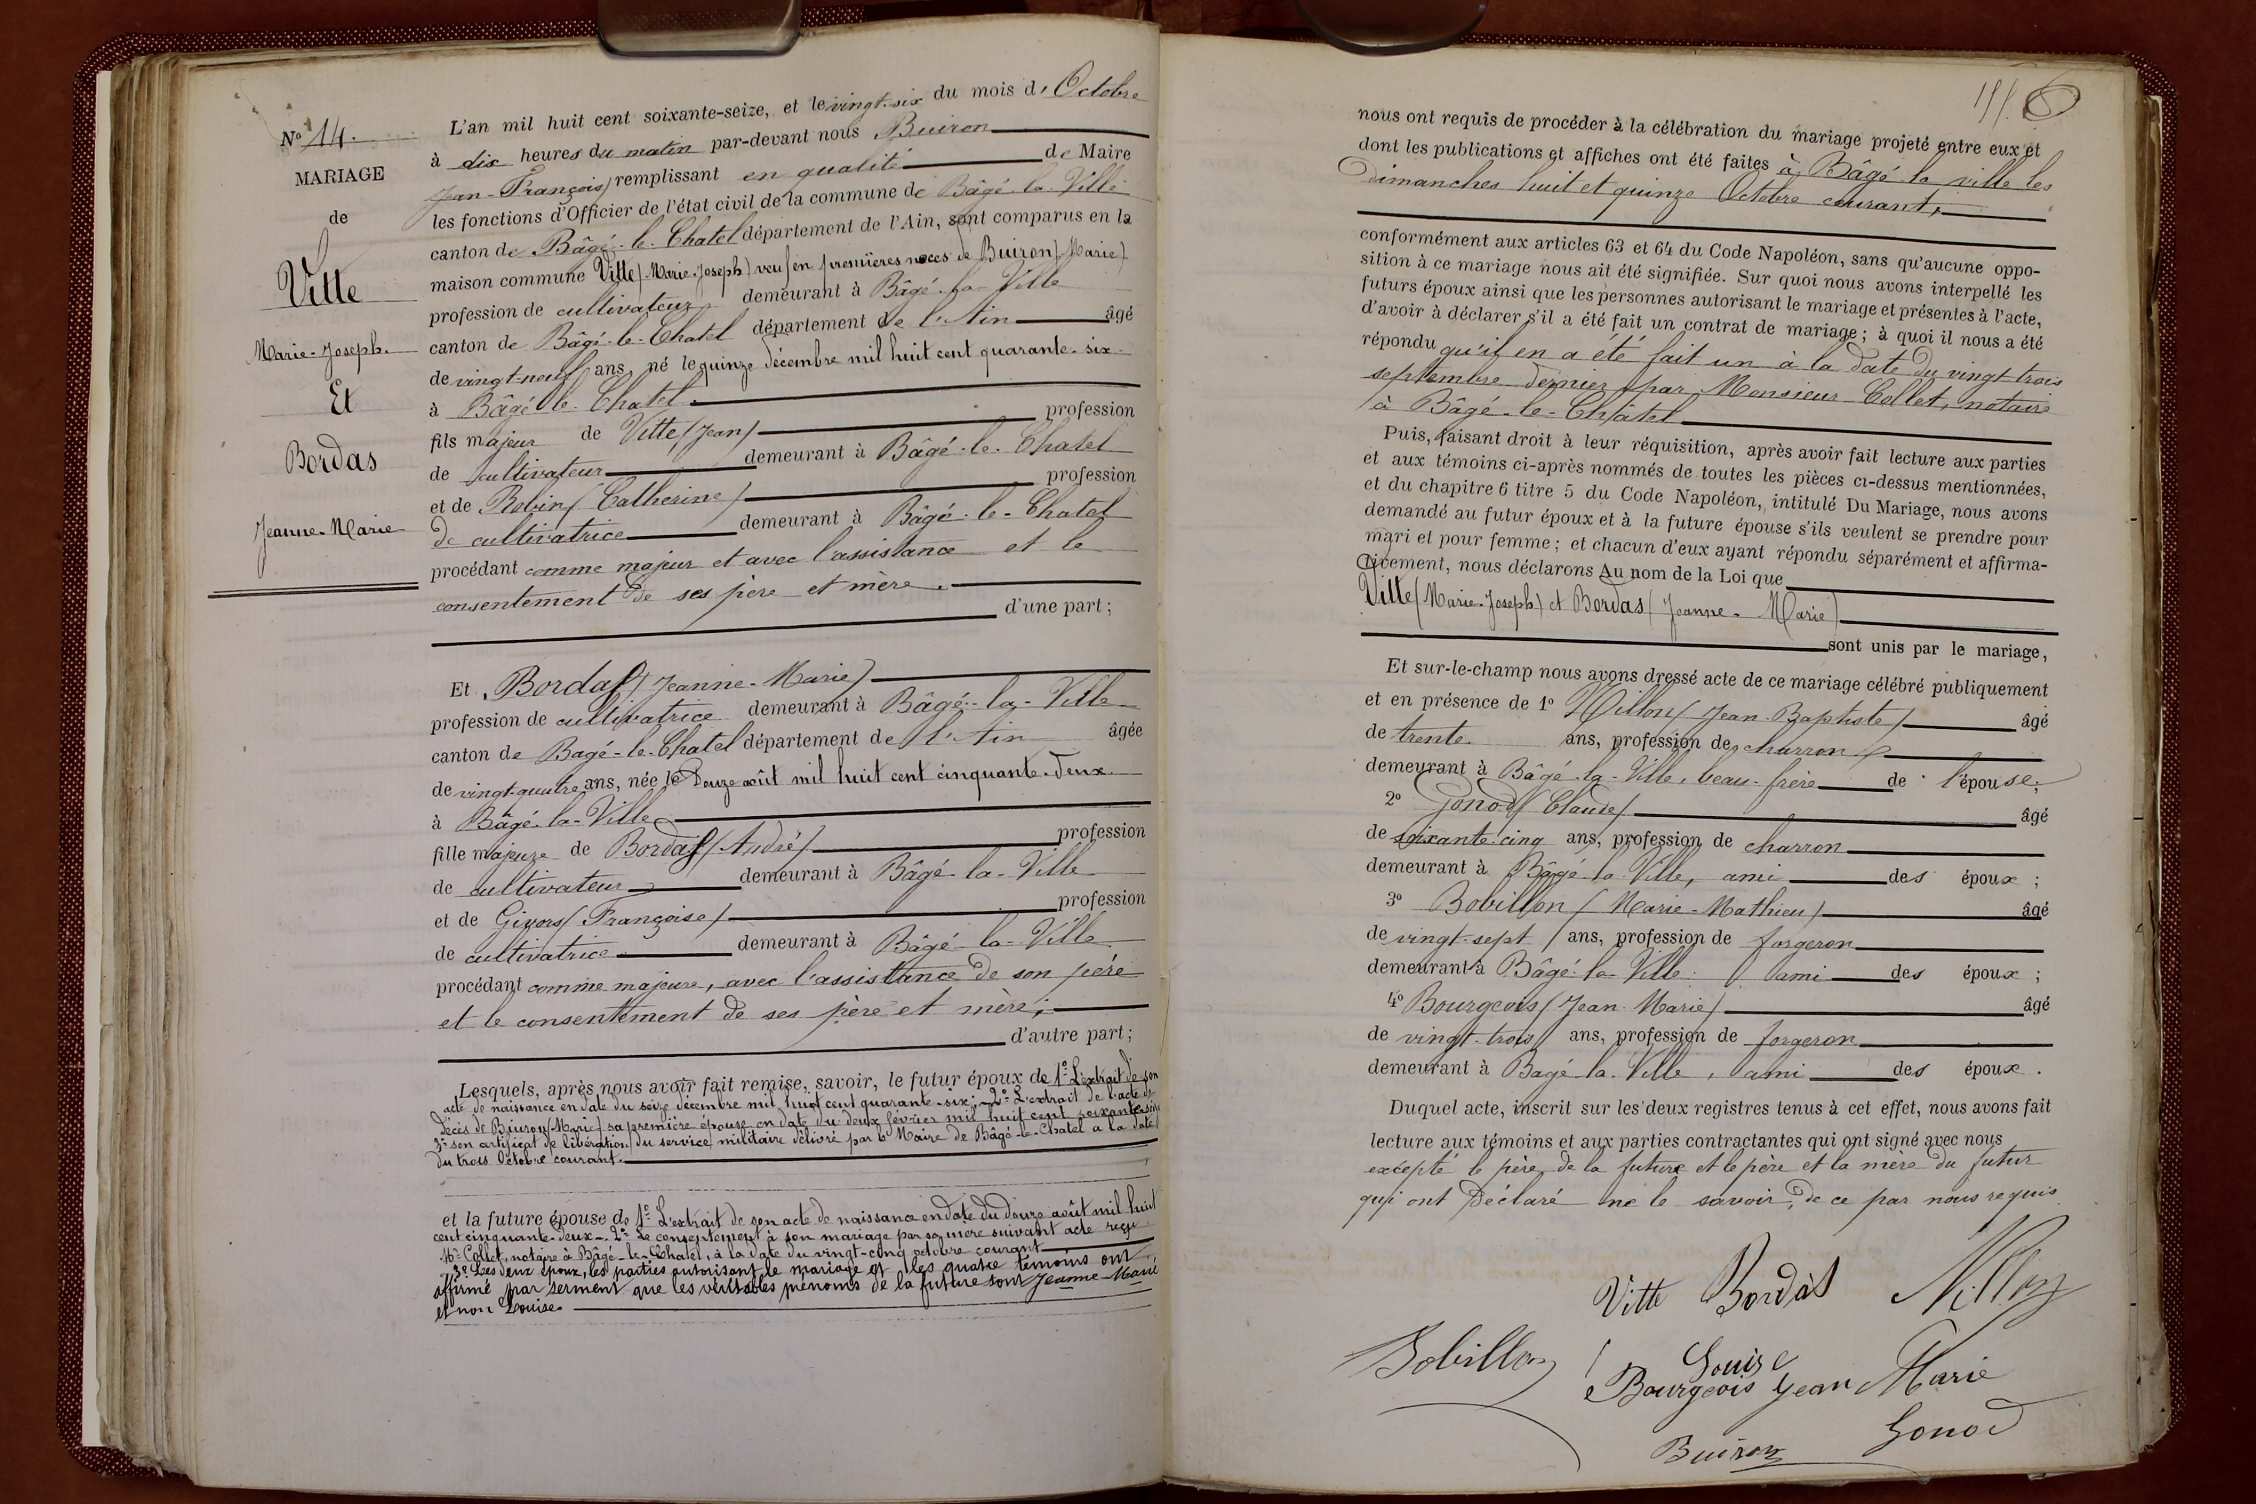 N° 14.
MARIAGE
de
Vitte
Marie-Joseph.
Et
Bordas
Jeanne-Marie
L'an mil huit cent soixante-seize, et le vingt-six du mois d'Octobre
à dix heures du matin par-devant nous Buiron
Jean-François) remplissant en qualité de Maire
les fonctions d'Officier de l'état civil de la commune de Bâgé-la-Ville
canton de Bâgé-le-Chatel département de l'Ain, sont comparus en la
maison commune Vitte (Marie-Joseph) veuf en premières noces de Buiron (Marie)
profession de cultivateur demeurant à Bâgé-la-Ville
canton de Bâgé-le-Chatel département de l'Ain âgé
de vingt-neuf ans, né le quinze décembre mil huit cent quarante-six
à Bâgé-le-Chatel.
fils majeur de Vitte (Jean) profession
de cultivateur demeurant à Bâgé-le-Chatel
et de Robin (Catherine) profession
de cultivatrice demeurant à Bâgé-le-Chatel
procédant comme majeur et avec l'assistance et le
consentement de ses père et mère.
d'une part;
Et Bordas (Jeanne-Marie)
profession de cultivatrice demeurant à Bâgé-la-Ville
canton de Bagé-le-Chatel département de l'Ain âgée
de vingt-quatre ans, née le Douze août mil huit cent cinquante-deux
à Bâgé-la-Ville
fille majeure de Bordas (André) profession
de cultivateur demeurant à Bâgé-la-Ville
et de Givors (Françoise) profession
de cultivatrice demeurant à Bâgé-la-Ville
procédant comme majeure, avec l'assistance de son père
et le consentement de ses père et mère;
d'autre part;
Lesquels, après nous avoir fait remise, savoir, le futur époux de 1° L'extrait de son
acte de naissance en date du seize décembre mil huit cent quarante-six; 2° L'extrait de l'acte de
décès de Buiron (Marie) sa première épouse en date du deux février mil huit cent soixante-
3° son certificat de libération du service militaire délivré par le Maire de Bâgé-le-Chatel à la date
du trois Octobre courant.
et la future épouse de 1° L'extrait de son acte de naissance en date du douze août mil huit
cent cinquante-deux. 2° Le consentement à son mariage par sa mère suivant acte reçu
Me Collet, notaire à Bâgé-le-Chatel, à la date du vingt-cinq octobre courant
3° Les deux époux, les parties autorisant le mariage et les quatre témoins ont
affirmé par serment que les véritables prénoms de la future sont Jeanne-Marie
et non Louise.
nous ont requis de procéder à la célébration du mariage projeté entre eux et
dont les publications et affiches ont été faites à Bâgé-la-ville les
dimanches huit et quinze Octobre courant,
conformément aux articles 63 et 64 du Code Napoléon, sans qu'aucune oppo-
sition à ce mariage nous ait été signifiée. Sur quoi nous avons interpellé les
futurs époux ainsi que les personnes autorisant le mariage et présentes à l'acte,
d'avoir à déclarer s'il a été fait un contrat de mariage; à quoi il nous a été
répondu qu'il en a été fait un à la date du vingt-trois
septembre dernier par Monsieur Collet, notaire
à Bâgé-le-Châtel
Puis, faisant droit à leur réquisition, après avoir fait lecture aux parties
et aux témoins ci-après nommés de toutes les pièces ci-dessus mentionnées,
et du chapitre 6 titre 5 du Code Napoléon, intitulé Du Mariage, nous avons
demandé au futur époux et à la future épouse s'ils veulent se prendre pour
mari et pour femme; et chacun d'eux ayant répondu séparément et affirma-
tivement, nous déclarons Au nom de la Loi que
Vitte (Marie-Joseph) et Bordas (Jeanne-Marie)
sont unis par le mariage,
Et sur-le-champ nous avons dressé acte de ce mariage célébré publiquement
et en présence de 1° Nillon (Jean-Baptiste) âgé
de trente ans, profession de charron
demeurant à Bâgé-la-Ville, beau-frère de l'épouse;
2° Gonod (Claude) âgé
de soixante-cinq ans, profession de charron
demeurant à Bâgé-la-Ville, ami des époux;
3° Bobillon (Marie-Mathieu) âgé
de vingt-sept ans, profession de forgeron
demeurant à Bâgé-la-Ville ami des époux;
4° Bourgeois (Jean-Marie) âgé
de vingt-trois ans, profession de forgeron
demeurant à Bagé-la-Ville, ami des époux.
Duquel acte, inscrit sur les deux registres tenus à cet effet, nous avons fait
lecture aux témoins et aux parties contractantes qui ont signé avec nous
excepté le père de la future et le père et la mère du futur
qui ont déclaré ne le savoir, de ce par nous requis.
Vitte Bordas Nillon
Bobillon Louise
Bourgeois Jean Marie
Gonod
Buiron